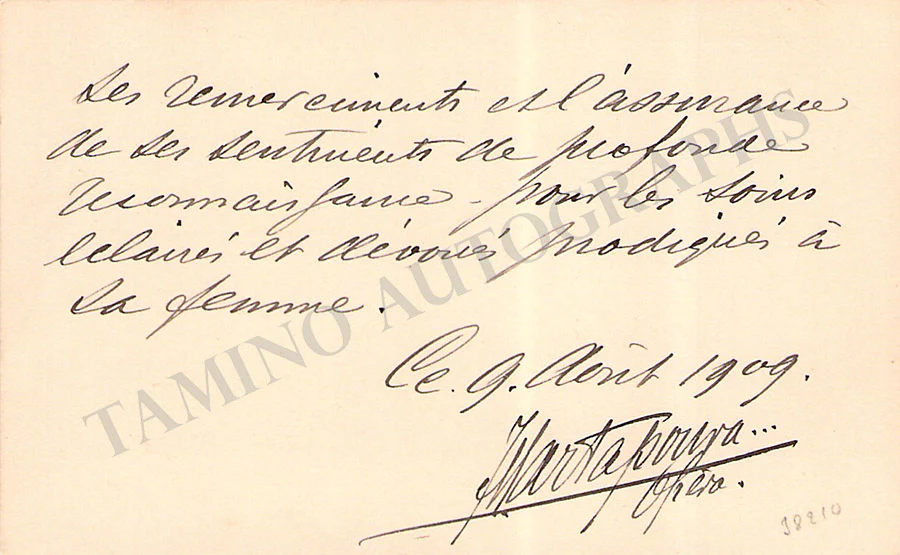 Ses remerciments et l'assurance
de ses sentiments de profonde
reconnaissance - pour les soins
éclairés et dévoués prodigués à
sa femme.
Ce. 9. Août 1909.
JMartapoura...
Opéra.
38210
TAMINO AUTOGRAPHS